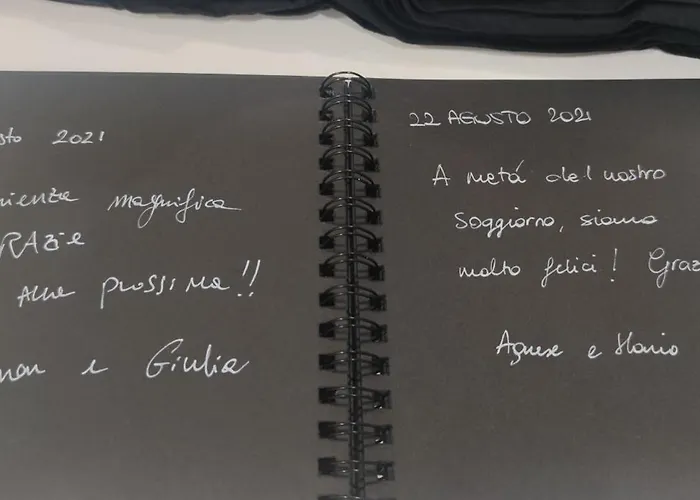 sto 2021
rienza magnifica
GRAZIE
Alla prossima!!
e Giulia
22 AGOSTO 2021
A metá del nostro
Soggiorno, siamo
molto felici! Graz
Agnese e